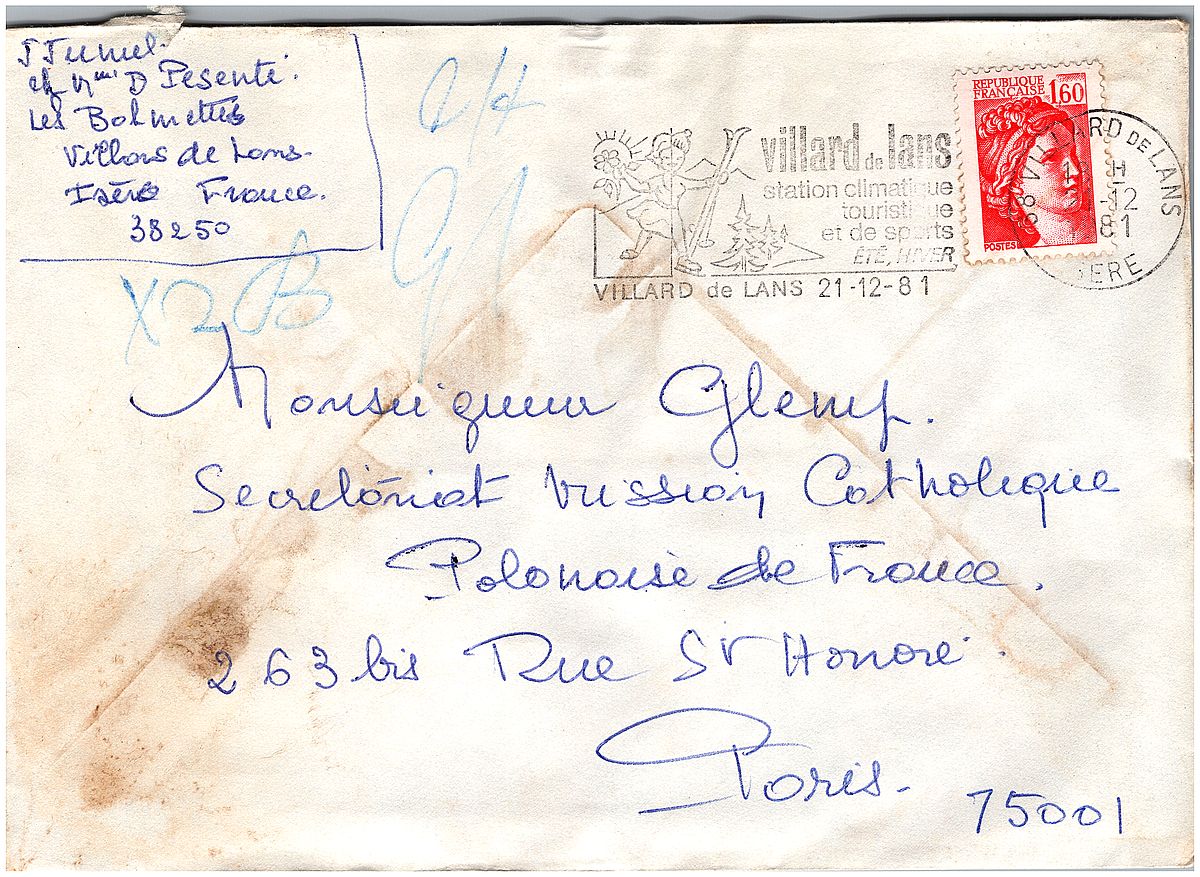 J Jumel.
ch Mme D Pesenti.
Les Bolmettes
Villars de Lans.
Isère France.
38250
X2B
villard de lans
station climatique
touristique
et de sports
ÉTÉ, HIVER
VILLARD de LANS 21-12-81
REPUBLIQUE
FRANÇAISE 1,60
POSTES
38 VILLARD DE LANS
H
-12
81
ISERE
Monseigneur Glemp.
Secretáriat Mission Catholique
Polonaise de France.
263 bis Rue St Honoré.
Paris.
75001